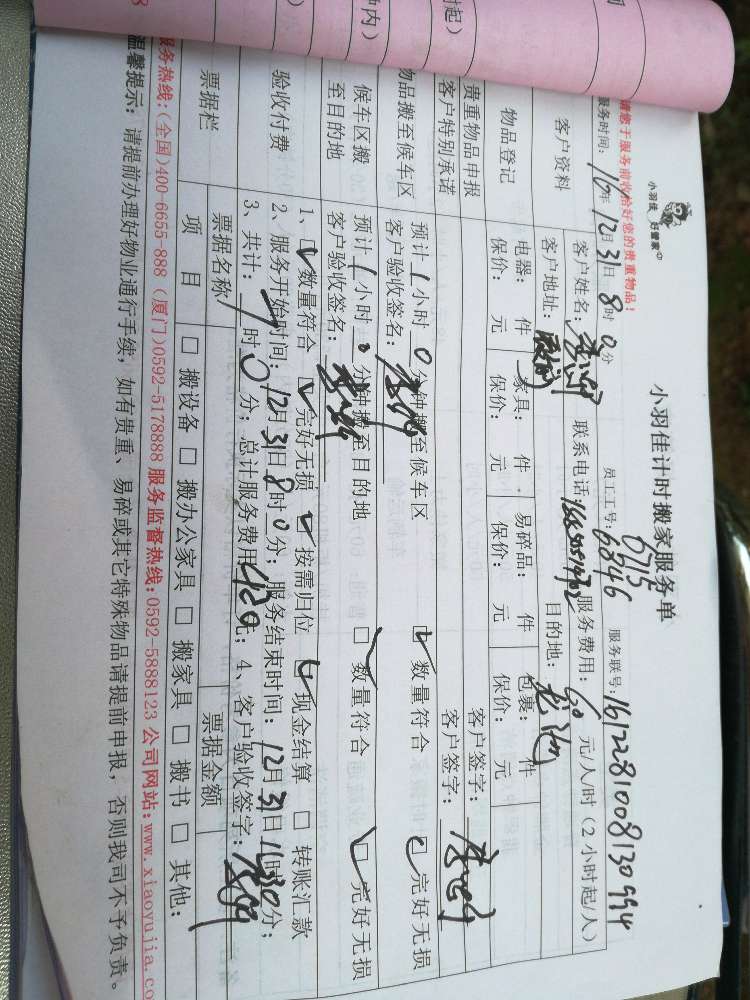 小羽佳 好管家
小羽佳计时搬家服务单
请您于服务前收拾好您的贵重物品！
员工工号：6715
6846
服务联号：1612281008130994
服务时间：16年12月31日8时0分
客户资料
客户姓名：
联系电话：
服务费用：60元/人/时（2小时起/人）
客户地址：
目的地：
物品登记
电器： 件 家具： 件 易碎品： 件 包裹： 件
保价： 元 保价： 元 保价： 元 保价： 元
贵重物品申报 客户签字：
客户特别承诺 客户签字：
物品搬至候车区
预计1小时0分钟搬至候车区 □数量符合 □完好无损
客户验收签名：
候车区搬至目的地
预计1小时 分钟搬至目的地 □数量符合 □完好无损
客户验收签名：
验收付费
1、数量符合 完好无损 按需归位 现金结算 □转账汇款
2、服务开始时间：12月31日8时0分；服务结束时间：12月31日 时30分；
3、共计： 时0分；总计服务费用420元；4、客户验收签字：
票据栏
票据名称 票据金额
项目 □搬设备 □搬办公家具 □搬家具 □搬书 □其他：
服务热线：(全国)400-6655-888 (厦门)0592-5178888 服务监督热线：0592-5888123 公司网站：www.xiaoyujia.co
温馨提示：请提前办理好物业通行手续，如有贵重、易碎或其它特殊物品请提前申报，否则我司不予负责。